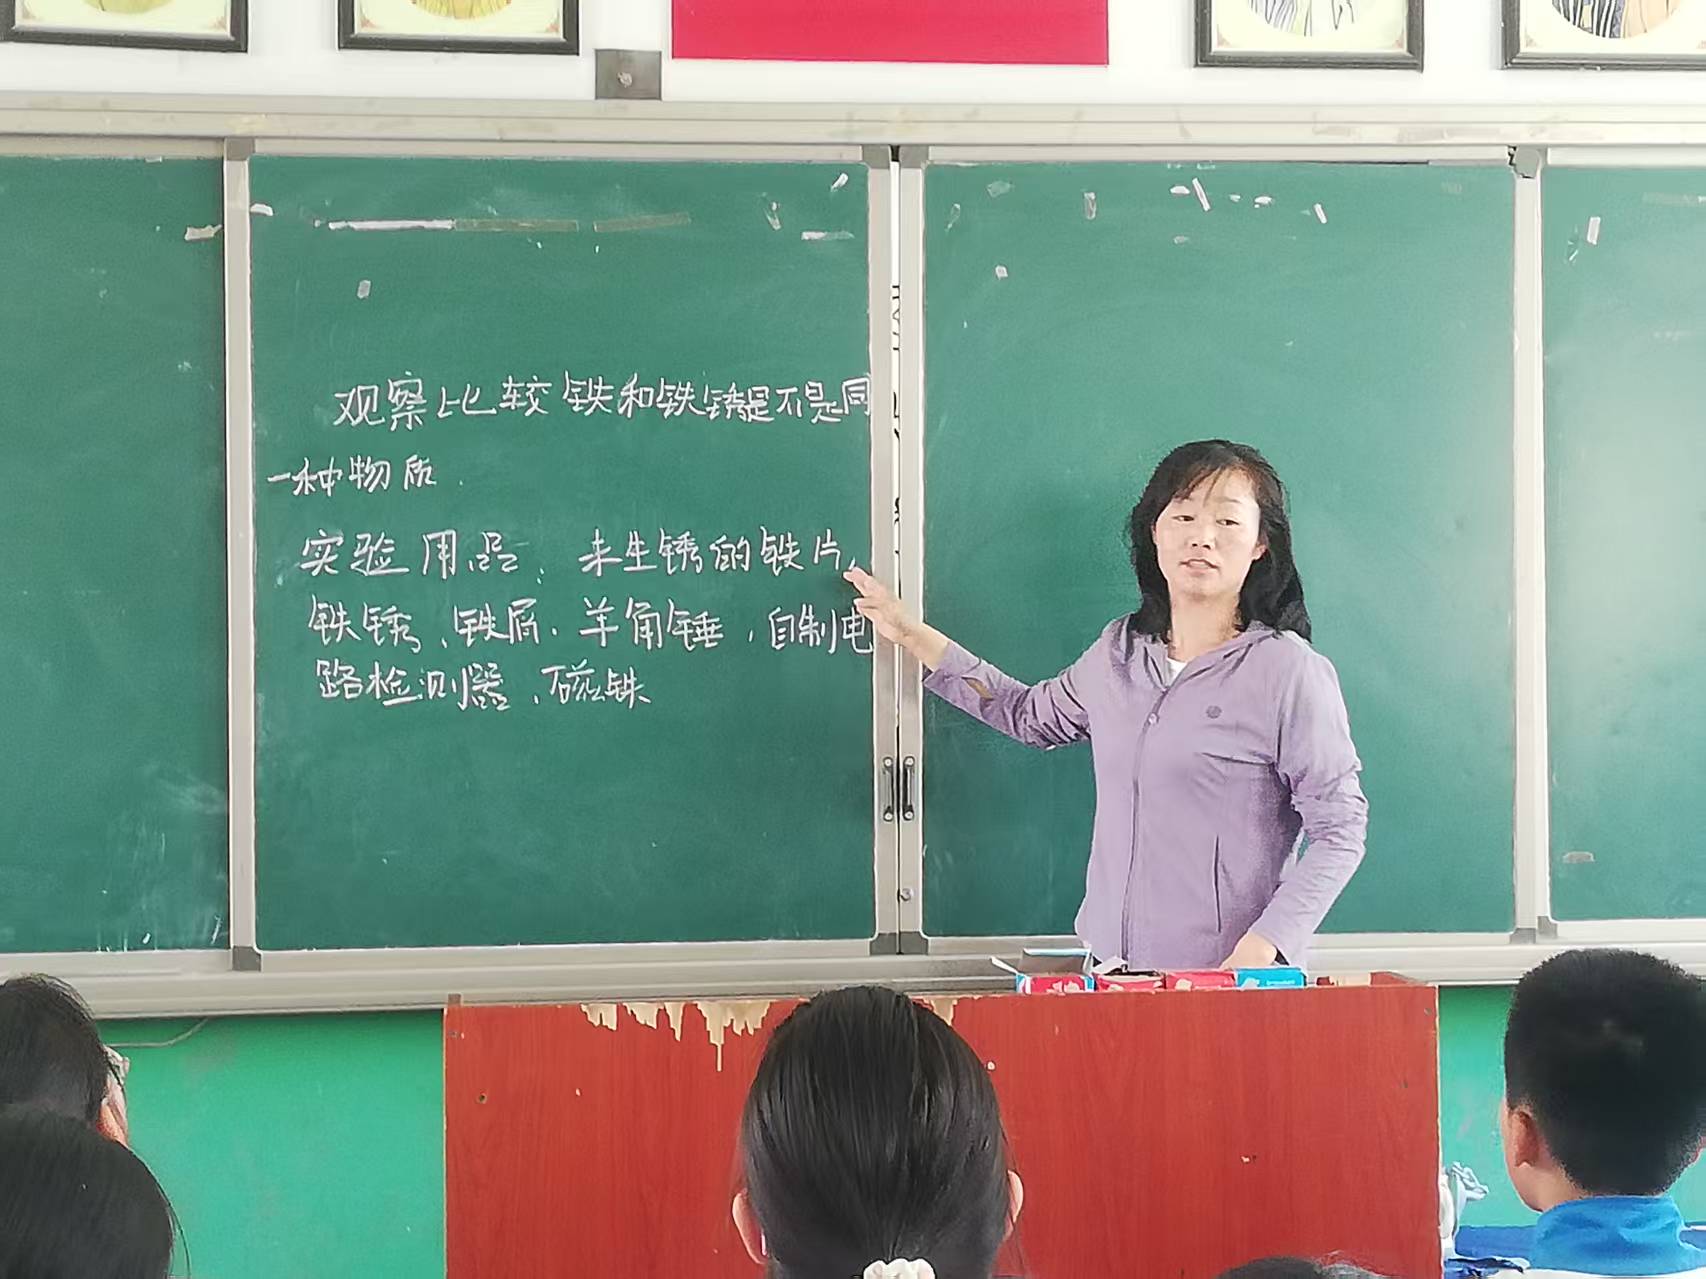 观察比较铁和铁锈是不是同
一种物质.
实验用品: 未生锈的铁片,
铁锈、铁屑.羊角锤,自制电
路检测器、磁铁